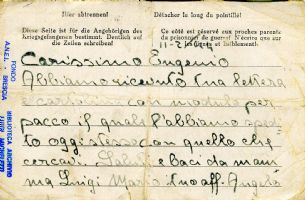 Hier abtrennen!
Détacher le long du pointillé!
Diese Seite ist für die Angehörigen des
Kriegsgefangenen bestimmt. Deutlich auf
die Zeilen schreiben!
Ce côté est réservé aux proches parents
du prisonnier de guerre. N'écrire que sur
les lignes et lisiblement!
11-2-1944
Carissimo Eugenio
Abbiamo ricevuto tua lettera
e cartolina con modulo per
pacco il quale l'abbiamo spedi
to oggi stesso con quello che
cercavi. Saluti e baci da mam
ma Luigi Mario tuo aff. Angelo
FONDO
A.N.E.I. - BRESCIA
BIBLIOTECA ARCHIVIO
LUIGI MICHELETTI